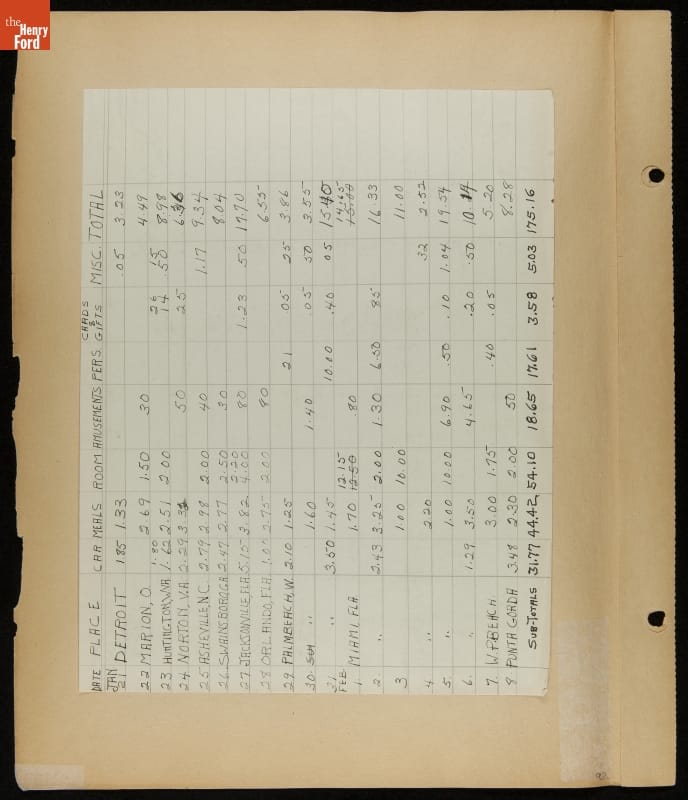 the
Henry
Ford
DATE PLACE CAR MEALS ROOM AMUSEMENTS PERS. CARDS & GIFTS MISC. TOTAL
JAN
21 DETROIT 1.85 1.33 .05 3.23
22 MARION, O. 2.69 1.50 30 4.49
23 HUNTINGTON, W.VA 1.80 1.62 2.51 2.00 26 14 15 .50 8.98
24 NORTON, VA 2.29 50 25
25 ASHEVILLE, N.C. 2.79 2.98 2.00 40 1.17 9.34
26 SWAINSBORO, GA 2.47 2.77 2.50 30 8.04
27 JACKSONVILLE, FLA. 5.15 3.82 2.20 4.00 80 1.23 .50 17.70
28 ORLANDO, FLA. 1.00 2.75 2.00 80 6.55
29 PALMBEACH, W. 2.10 1.25 21 .05 25 3.86
30. SUN " 1.60 1.40 .05 50 3.55
31. " 3.50 1.45 10.00 .40 05 15.40
FEB.
1. MIAMI FLA. 1.70 12.15 12.50 .80 14.65 15.00
2. " 2.43 3.25 2.00 1.30 6.50 85 16.33
3 1.00 10.00 11.00
4. " 2.20 32 2.52
5. " 1.00 10.00 6.90 .50 .10 1.04 19.54
6. " 1.29 3.50 4.65 .20 .50 10.14
7. W.P.BEACH 3.00 1.75 .40 .05 5.20
8 PUNTA GORDA 3.48 2.30 2.00 50 8.28
SUB-TOTALS 31.77 44.42 54.10 18.65 17.61 3.58 5.03 175.16